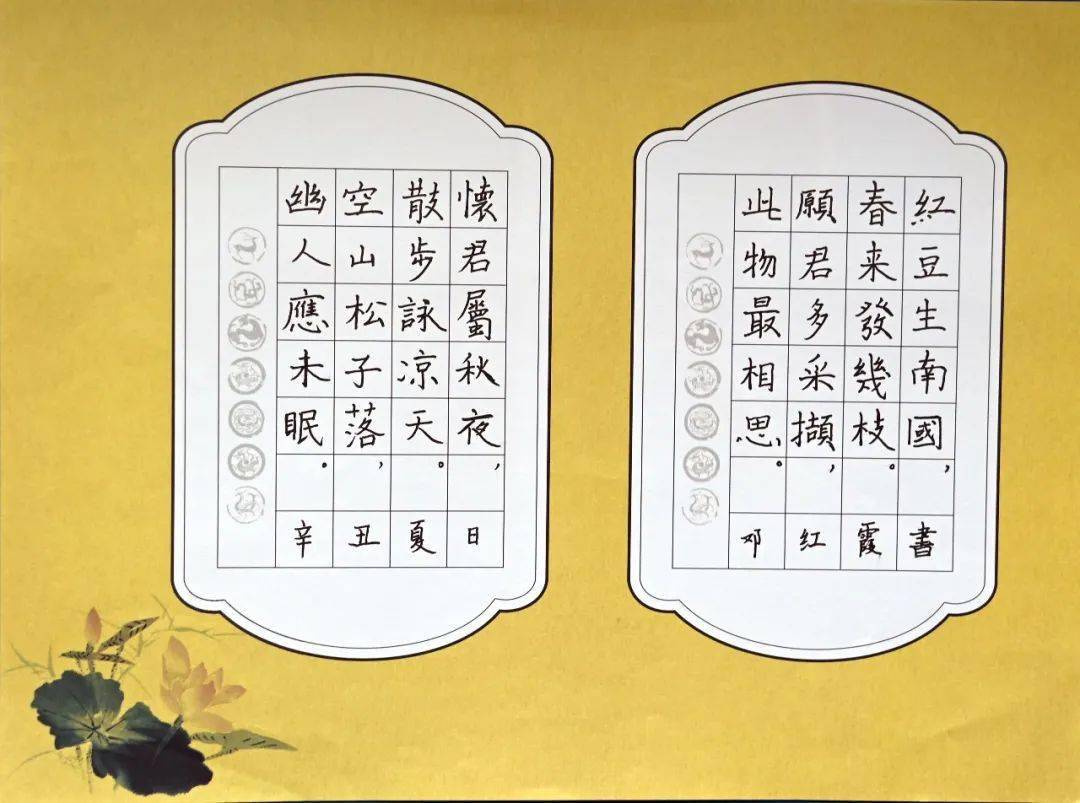 紅豆生南國，
春来發幾枝。
願君多采擷，
此物最相思。
懷君屬秋夜，
散步詠凉天。
空山松子落，
幽人應未眠。
辛丑夏日
邓红霞書